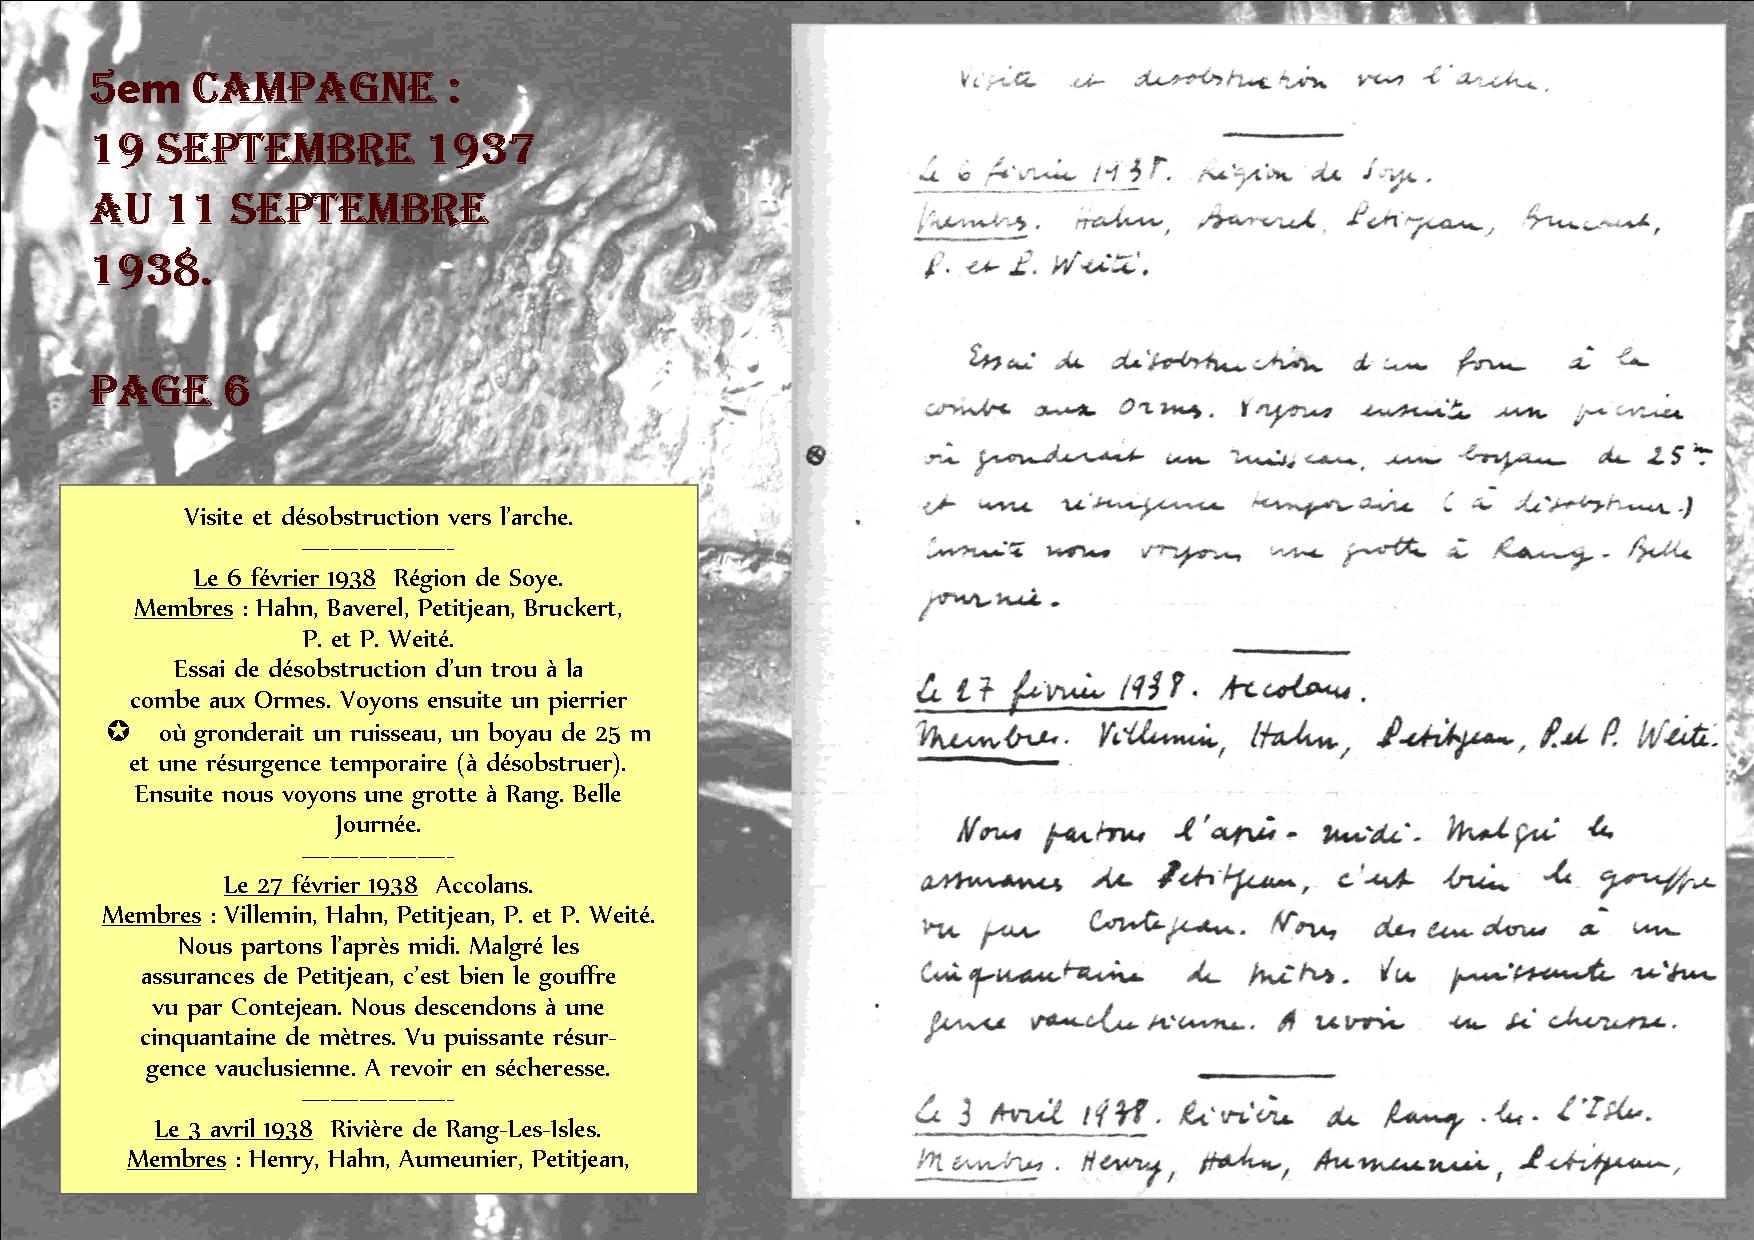 5em CAMPAGNE :
19 SEPTEMBRE 1937
AU 11 SEPTEMBRE
1938.
PAGE 6
Visite et désobstruction vers l'arche.
Le 6 février 1938 Région de Soye.
Membres : Hahn, Baverel, Petitjean, Bruckert,
P. et P. Weité.
Essai de désobstruction d'un trou à la
combe aux Ormes. Voyons ensuite un pierrier
✪ où gronderait un ruisseau, un boyau de 25 m
et une résurgence temporaire (à désobstruer).
Ensuite nous voyons une grotte à Rang. Belle
Journée.
Le 27 février 1938 Accolans.
Membres : Villemin, Hahn, Petitjean, P. et P. Weité.
Nous partons l'après midi. Malgré les
assurances de Petitjean, c'est bien le gouffre
vu par Contejean. Nous descendons à une
cinquantaine de mètres. Vu puissante résur-
gence vauclusienne. A revoir en sécheresse.
Le 3 avril 1938 Rivière de Rang-Les-Isles.
Membres : Henry, Hahn, Aumeunier, Petitjean,
Visite et desobstruction vers l'arche.
Le 6 février 1938. Région de Soye.
Membres. Hahn, Baverel, Petitjean, Bruckert,
P. et P. Weité.
Essai de désobstruction d'un trou à la
combe aux Ormes. Voyons ensuite un pierrier
où gronderait un ruisseau, un boyau de 25 m
et une résurgence temporaire (à désobstruer.)
Ensuite nous voyons une grotte à Rang. Belle
journée.
Le 27 février 1938. Accolans.
Membres. Villemin, Hahn, Petitjean, P. et P. Weité.
Nous partons l'après-midi. Malgré les
assurances de Petitjean, c'est bien le gouffre
vu par Contejean. Nous descendons à un
cinquantaine de mètres. Vu puissante résur
gence vauclusienne. A revoir en sécheresse.
Le 3 Avril 1938. Rivière de Rang-les-l'Isles.
Membres. Henry, Hahn, Aumeunier, Petitjean,